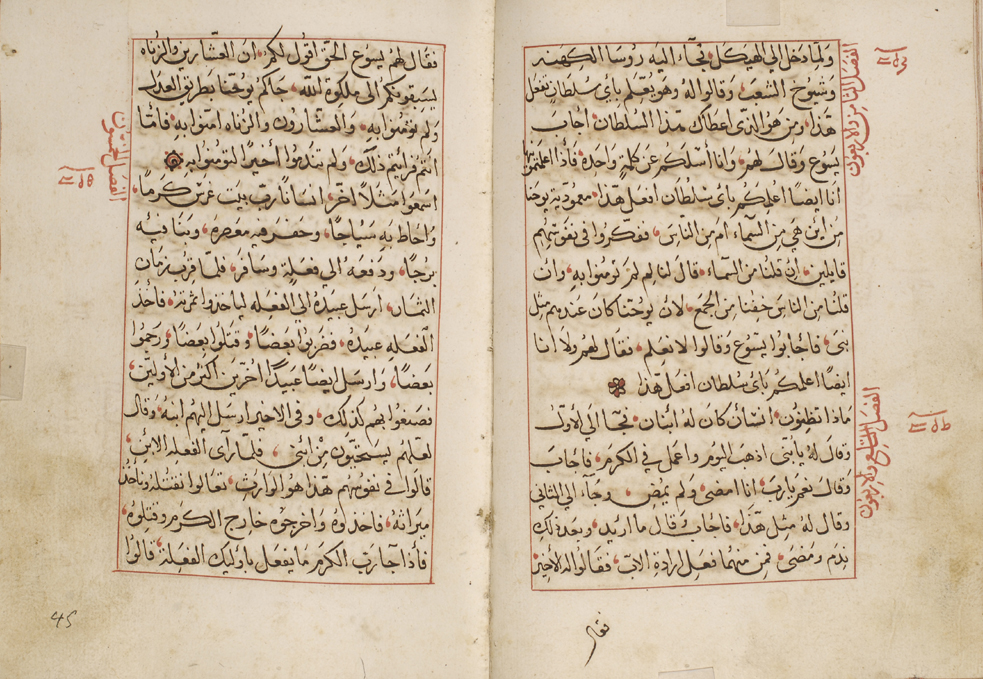 ولما دخل الي الهيكل فجآء اليه روسا الكهنه
وشيوخ الشعب وقالوا له وهو يعلم باي سلطان تفعل
هذا ومن هو الذي اعطاك هذا السلطان اجاب
يسوع وقال لهم وانا أسلكم عن كلمة واحده فأذا اعلمتموني
أنا ايضا اعلمكم باي سلطان افعل هذا معمودية يوحنا
من أين هي من السمآء ام من الناس ففكروا في نفوسهم
قايلين ان قلنا من السمآء قال لنا لم لم تومنوا به وان
قلنا من الناس خفنا من الجمع لان يوحنا كان عندهم مثل
نبي فاجابوا يسوع وقالوا لا نعلم فقال لهم ولا أنا
ايضا اعلمكم باي سلطان افعل هذا
ماذا تظنون انسان كان له أبنان فجآ الي الاول
وقال له يا بني اذهب اليوم واعمل في الكرم فاجاب
وقال نعم يا رب انا امضي ولم يمض وجآء الي الثاني
وقال له مثل هذا فاجاب قال ما اريد وبعد ذلك
ندم ومضي فمن منهما فعل ارادة الاب فقالوا له الأخير
فقال
الفصل الثامن والاربعون
الفصل التاسع والاربعون
فقال لهم يسوع الحق اقول لكم ان العشارين والزناه
يسبقوبكم الي ملكوة الله جاكم يوحنا بطريق العدل
ولم تؤمنوا به والعشارون والزناه امنوا به فأمّا
انتم فرأيتم ذلك ولم تندموا أخيرًا لتومنوا به
اسمعوا مثلًا اخر انسانًا رب بيت غرس كرمًا
واحاط به سياجًا وحفر فيه معصره وبنا فيه
برجًا ودفعه الي فعلة وسافر فلما قرب زمان
الثمار ارسل عبيده الي الفعله لياخذوا ثمرته فأخذ
الفعله عبيده فضربوا بعضًا وقتلوا بعضًا ورجموا
بعضًا وارسل ايضًا عبيدًا أخرين اكثر من الأولين
فصنعوا بهم كذلك وفي الاخير ارسل اليهم ابنه وقال
لعلهم يستحيون من أبني فلما رأى الفعله الابن
قالوا في نفوسهم هذا هو الوارث تعالوا نقتله وناخذ
ميراثه فاخذوه واخرجوه خارج الكرم وقتلوه
فأذا جآ رب الكرم ما يفعل باوليك الفعلة قالوا
الفصل الخمسون
45